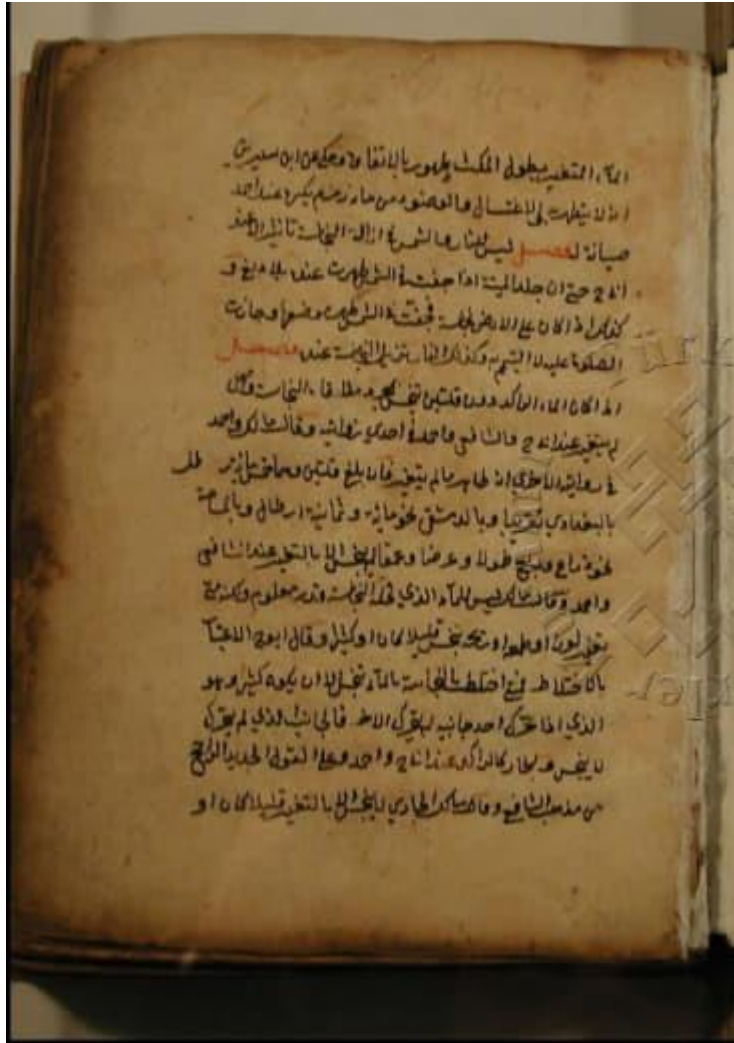 الماء المتغير بطول المكث طهور بالاتفاق وحكي عن ابن سيرين
انه لا يتطهر به الاغتسال والوضوء من ماء زمزم يكره عند احمد
صيانة له فصل ليس للنار والشمس في ازالة النجاسة تاثير الا عند
ابي ح حتى ان جلد الميتة اذا جفت في الشمس طهرت عنده بلا دبغ و
كذلك اذا كان على الارض نجاسة فجفت في الشمس طهر موضعها وجازت
الصلوة عليه لا التيمم به وكذلك النار تزيل النجاسة عنده فصل
اذا كان الماء الراكد دون قلتين تنجس بمجرد ملاقاة النجاسة وان
لم يتغير عند ابي ح والشافعي واحمد في احدى روايتيه وقال مالك واحمد
في روايته الاخرى انه طاهر ما لم يتغير فان بلغ قلتين وهما خمسماية رطل
بالبغدادي تقريبا وبالدمشقي نحو ماية وثمانية ارطال وبالمساحة
نحو ذراع وربع طولا وعرضا وعمقا لم ينجس الا بالتغير عند الشافعي
واحمد وقال مالك ليس للماء الذي تحله النجاسة قدر معلوم ولكنه متى
تغير لونه او طعمه او ريحه تنجس قليلا كان او كثيرا وقال ابو ح الاعتبار
بالاختلاط فمتى اختلطت النجاسة بالماء تنجس الا ان يكون كثيرا وهو
الذي اذا حرك احد جانبيه لم يتحرك الاخر فالجانب الذي لم يتحرك
لا ينجس والجاري كالراكد عند ابي ح واحمد وعلى القول الجديد الراجح
من مذهب الشافعي وقال مالك الجاري لا ينجس الا بالتغير قليلا كان او